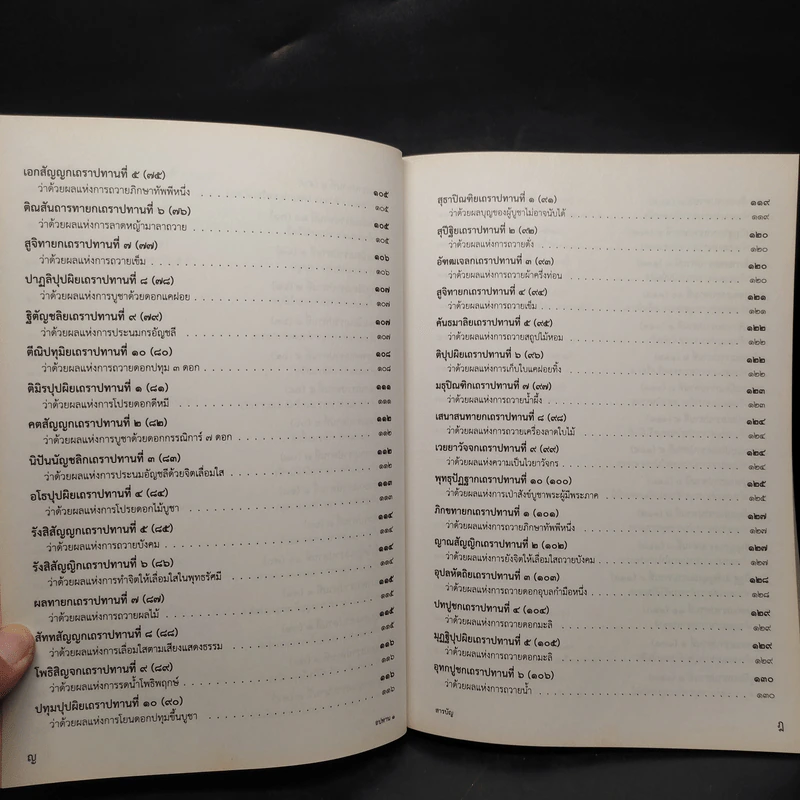 เอกสัญญกเถราปทานที่ ๕ (๗๕) ๑๐๕
ว่าด้วยผลแห่งการถวายภิกษาทัพพีหนึ่ง ๑๐๕
ติณสันถารทายกเถราปทานที่ ๖ (๗๖) ๑๐๕
ว่าด้วยผลแห่งการลาดหญ้ามาลาถวาย ๑๐๕
สูจิทายกเถราปทานที่ ๗ (๗๗) ๑๐๖
ว่าด้วยผลแห่งการถวายเข็ม ๑๐๖
ปาฏลิปุปผิยเถราปทานที่ ๘ (๗๘) ๑๐๗
ว่าด้วยผลแห่งการบูชาด้วยดอกแคฝอย ๑๐๗
ฐิตัญชลิยเถราปทานที่ ๙ (๗๙) ๑๐๗
ว่าด้วยผลแห่งการประนมกรอัญชลี ๑๐๗
ตีณิปทุมิยเถราปทานที่ ๑๐ (๘๐) ๑๐๘
ว่าด้วยผลแห่งการถวายดอกปทุม ๓ ดอก ๑๐๘
ติมิรปุปผิยเถราปทานที่ ๑ (๘๑) ๑๑๑
ว่าด้วยผลแห่งการโปรยดอกดีหมี ๑๑๑
คตสัญญกเถราปทานที่ ๒ (๘๒) ๑๑๒
ว่าด้วยผลแห่งการบูชาด้วยดอกกรรณิการ์ ๗ ดอก ๑๑๒
นิปันนัญชลิกเถราปทานที่ ๓ (๘๓) ๑๑๒
ว่าด้วยผลแห่งการประนมอัญชลีด้วยจิตเลื่อมใส ๑๑๒
อโธปุปผิยเถราปทานที่ ๔ (๘๔) ๑๑๓
ว่าด้วยผลแห่งการโปรยดอกไม้บูชา ๑๑๓
รังสิสัญญกเถราปทานที่ ๕ (๘๕) ๑๑๔
ว่าด้วยผลแห่งการถวายบังคม ๑๑๔
รังสิสัญญิกเถราปทานที่ ๖ (๘๖) ๑๑๔
ว่าด้วยผลแห่งการทำจิตให้เลื่อมใสในพุทธรัศมี ๑๑๔
ผลทายกเถราปทานที่ ๗ (๘๗) ๑๑๕
ว่าด้วยผลแห่งการถวายผลไม้ ๑๑๕
สัททสัญญกเถราปทานที่ ๘ (๘๘) ๑๑๕
ว่าด้วยผลแห่งการเลื่อมใสตามเสียงแสดงธรรม ๑๑๕
โพธิสิญจกเถราปทานที่ ๙ (๘๙) ๑๑๖
ว่าด้วยผลแห่งการรดน้ำโพธิพฤกษ์ ๑๑๖
ปทุมปุปผิยเถราปทานที่ ๑๐ (๙๐) ๑๑๖
ว่าด้วยผลแห่งการโยนดอกปทุมขึ้นบูชา ๑๑๖
อปทาน ๑
ญ
สุธาปิณฑิยเถราปทานที่ ๑ (๙๑) ๑๑๙
ว่าด้วยผลบุญของผู้บูชาไม่อาจนับได้ ๑๑๙
สุปิฐิยเถราปทานที่ ๒ (๙๒) ๑๒๐
ว่าด้วยผลแห่งการถวายตั่ง ๑๒๐
อัฑฒเจลกเถราปทานที่ ๓ (๙๓) ๑๒๐
ว่าด้วยผลแห่งการถวายผ้าครึ่งท่อน ๑๒๐
สูจิทายกเถราปทานที่ ๔ (๙๔) ๑๒๑
ว่าด้วยผลแห่งการถวายเข็ม ๑๒๑
คันธมาลิยเถราปทานที่ ๕ (๙๕) ๑๒๒
ว่าด้วยผลแห่งการถวายสถูปไม้หอม ๑๒๒
ติปุปผิยเถราปทานที่ ๖ (๙๖) ๑๒๒
ว่าด้วยผลแห่งการเก็บใบแคฝอยทิ้ง ๑๒๒
มธุปิณฑิกเถราปทานที่ ๗ (๙๗) ๑๒๓
ว่าด้วยผลแห่งการถวายน้ำผึ้ง ๑๒๓
เสนาสนทายกเถราปทานที่ ๘ (๙๘) ๑๒๔
ว่าด้วยผลแห่งการถวายเครื่องลาดใบไม้ ๑๒๔
เวยยาวัจจกเถราปทานที่ ๙ (๙๙) ๑๒๔
ว่าด้วยผลแห่งความเป็นไวยาวัจกร ๑๒๔
พุทธุปัฏฐากเถราปทานที่ ๑๐ (๑๐๐) ๑๒๕
ว่าด้วยผลแห่งการเป่าสังข์บูชาพระผู้มีพระภาค ๑๒๕
ภิกขทายกเถราปทานที่ ๑ (๑๐๑) ๑๒๗
ว่าด้วยผลแห่งการถวายภิกษาทัพพีหนึ่ง ๑๒๗
ญาณสัญญิกเถราปทานที่ ๒ (๑๐๒) ๑๒๗
ว่าด้วยผลแห่งการยังจิตให้เลื่อมใสถวายบังคม ๑๒๗
อุปลหัตถิยเถราปทานที่ ๓ (๑๐๓) ๑๒๘
ว่าด้วยผลแห่งการถวายดอกอุบลกำมือหนึ่ง ๑๒๘
ปทปูชกเถราปทานที่ ๔ (๑๐๔) ๑๒๙
ว่าด้วยผลแห่งการถวายดอกมะลิ ๑๒๙
มุฏฐิปุปผิยเถราปทานที่ ๕ (๑๐๕) ๑๒๙
ว่าด้วยผลแห่งการถวายดอกมะลิ ๑๒๙
อุทกปูชกเถราปทานที่ ๖ (๑๐๖) ๑๓๐
ว่าด้วยผลแห่งการถวายน้ำ ๑๓๐
สารบัญ
ฎ